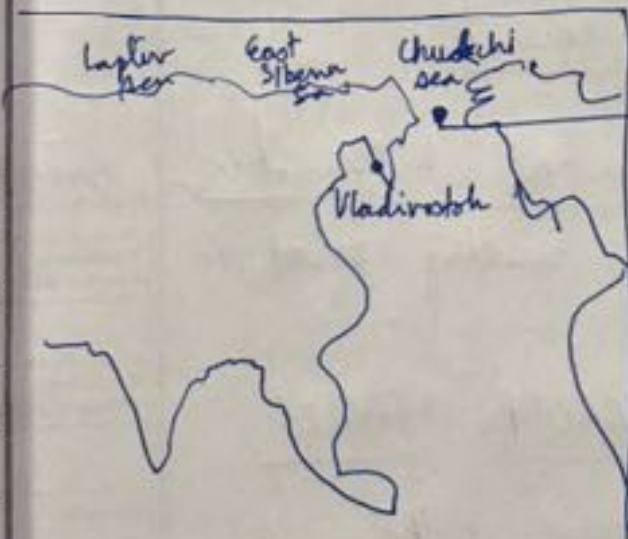 Laptev
sea
East
Siberia
Sea
Chuckchi
sea
Vladivostok